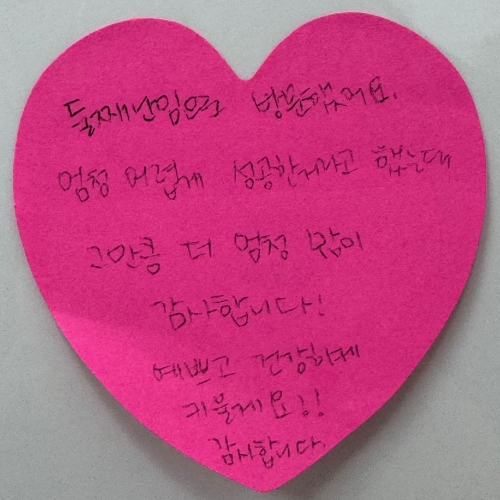 둘째난임으로 방문했어요.
엄청 어렵게 성공한거라고 했는데
그만큼 더 엄청 많이
감사합니다!
예쁘고 건강하게
키울게요!!
감사합니다.